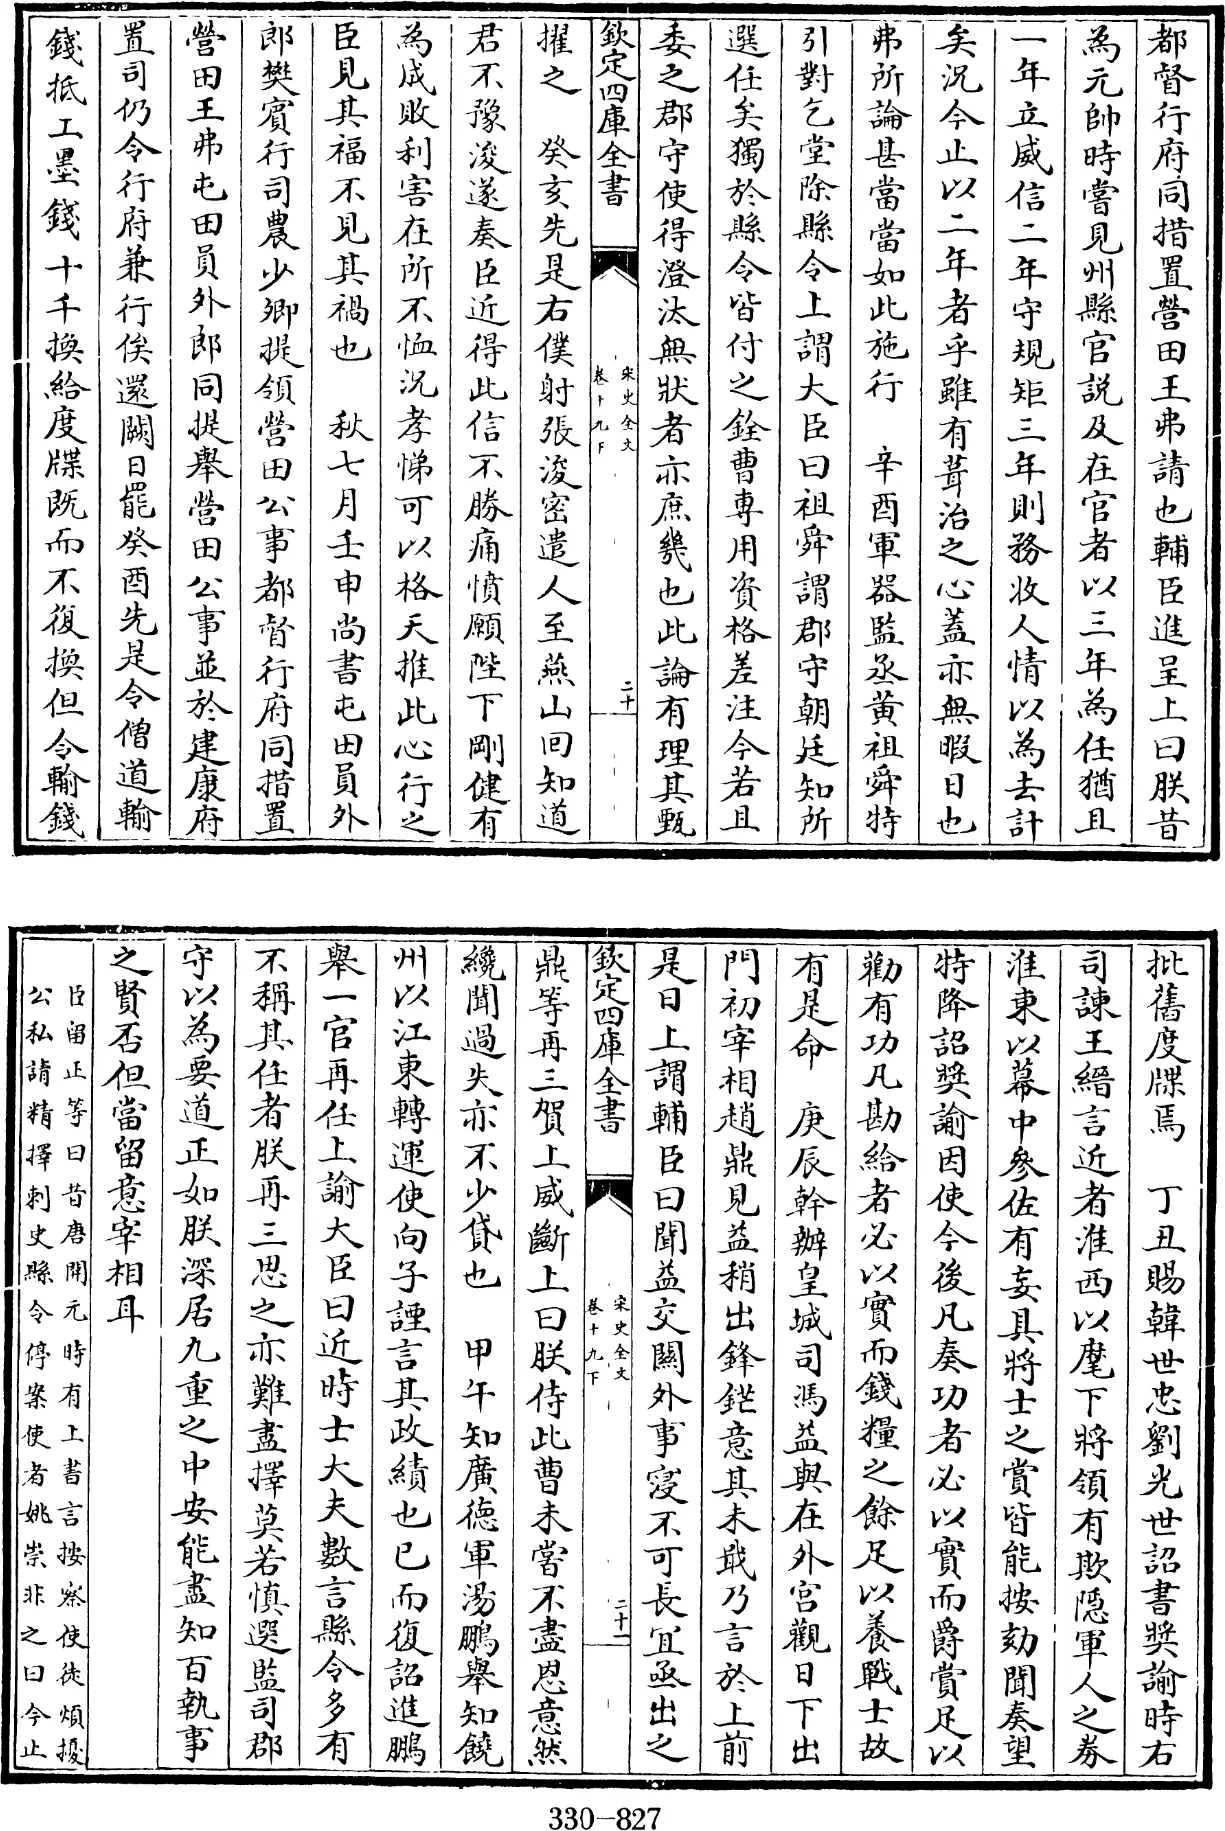 都督行府同措置營田王弗請也輔臣進呈上曰朕昔
為元帥時嘗見州縣官說及在官者以三年為任猶且
一年立威信二年守規矩三年則務收人情以為去計
矣況今止以二年者乎雖有葺治之心蓋亦無暇日也
弗所論甚當當如此施行　辛酉軍器監丞黄祖舜特
引對乞堂除縣令上謂大臣曰祖舜謂郡守朝廷知所
選任矣獨於縣令皆付之銓曹專用資格差注今若且
委之郡守使得澄汰無狀者亦庶幾也此論有理其甄
欽定四庫全書
宋史全文
卷十九下
二十
擢之　癸亥先是右僕射張浚密遣人至燕山回知道
君不豫浚遂奏臣近得此信不勝痛憤願陛下剛健有
為成敗利害在所不恤況孝悌可以格天推此心行之
臣見其福不見其禍也　秋七月壬申尚書屯田員外
郎樊賓行司農少卿提領營田公事都督行府同措置
營田王弗屯田員外郎同提舉營田公事並於建康府
置司仍令行府兼行俟還闕日罷癸酉先是令僧道輸
錢抵工墨錢十千換給度牒既而不復換但令輸錢
批舊度牒焉　丁丑賜韓世忠劉光世詔書奬諭時右
司諫王縉言近者淮西以麾下將領有欺隱軍人之券
淮東以幕中參佐有妄具將士之賞皆能按劾聞奏望
特降詔奬諭因使今後凡奏功者必以實而爵賞足以
勸有功凡勘給者必以實而錢糧之餘足以養戰士故
有是命　庚辰幹辦皇城司馮益與在外宮觀日下出
門初宰相趙鼎見益稍出鋒鋩意其未戢乃言於上前
是日上謂輔臣曰聞益交關外事寖不可長宜亟出之
欽定四庫全書
宋史全文
卷十九下
二十一
鼎等再三賀上威斷上曰朕待此曹未嘗不盡恩意然
纔聞過失亦不少貸也　甲午知廣德軍湯鵬舉知饒
州以江東轉運使向子諲言其政績也已而復詔進鵬
舉一官再任上諭大臣曰近時士大夫數言縣令多有
不稱其任者朕再三思之亦難盡擇莫若慎選監司郡
守以為要道正如朕深居九重之中安能盡知百執事
之賢否但當留意宰相耳
臣留正等曰昔唐開元時有上書言按察使徒煩擾
公私請精擇刺史縣令停案使者姚崇非之曰今止
330-827